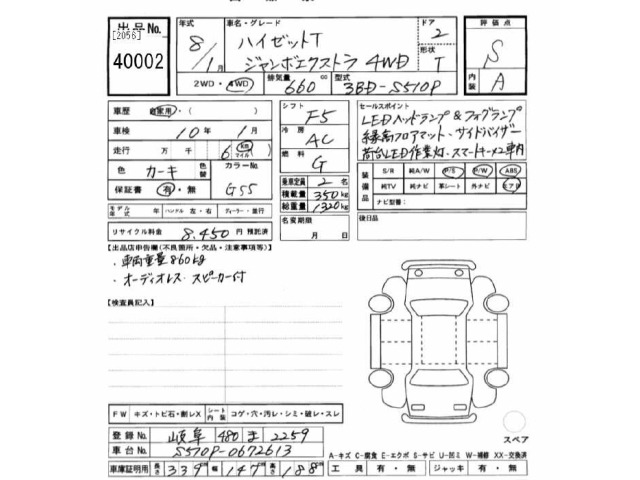 出品No.
[2056]
40002
年式
8/1月
車名・グレード
ハイゼットT
ジャンボエクストラ 4WD
ドア
2
形状
T
評価点
S
内装
A
2WD・4WD
排気量
660 cc
型式
3BD-S510P
車歴 自家用・( )
車検 10年 1月
走行 万 千 6 km マイル
色 カーキ 色替 カラーNo.
保証書 有・無 G55
モデル年式 年 ハンドル 左・右 ディーラー・並行
リサイクル料金 8,450円 預託済
シフト F5
冷房 AC
燃料 G
乗車定員 2名
積載量 350kg
総重量 1320kg
名変期限
月 日
セールスポイント
LEDヘッドランプ&フォグランプ
縁高フロアマット、サイドバイザー
荷台LED作業灯、スマートキーX2車内
装備品
S/R 純A/W P/S P/W ABS
純TV 純ナビ 革シート 外ナビ エアB
ナビ型番( )
後日品
【出品店申告欄(不良箇所・欠品・注意事項等)】
・車両重量860kg
・オーディオレス スピーカー付
【検査員記入】
FW キズ・トビ石・割レX シート内装 コゲ・穴・汚レ・シミ・破レ・スレ
登録No. 岐阜 480 ま 2259
車台No. S510P-0672613
車庫証明用 長さ 339 幅 147 高さ 188
スペア
A-キズ C-腐食 E-エクボ S-サビ U-凹ミ W-補修 XX-交換済
工具 有・無 ジャッキ 有・無